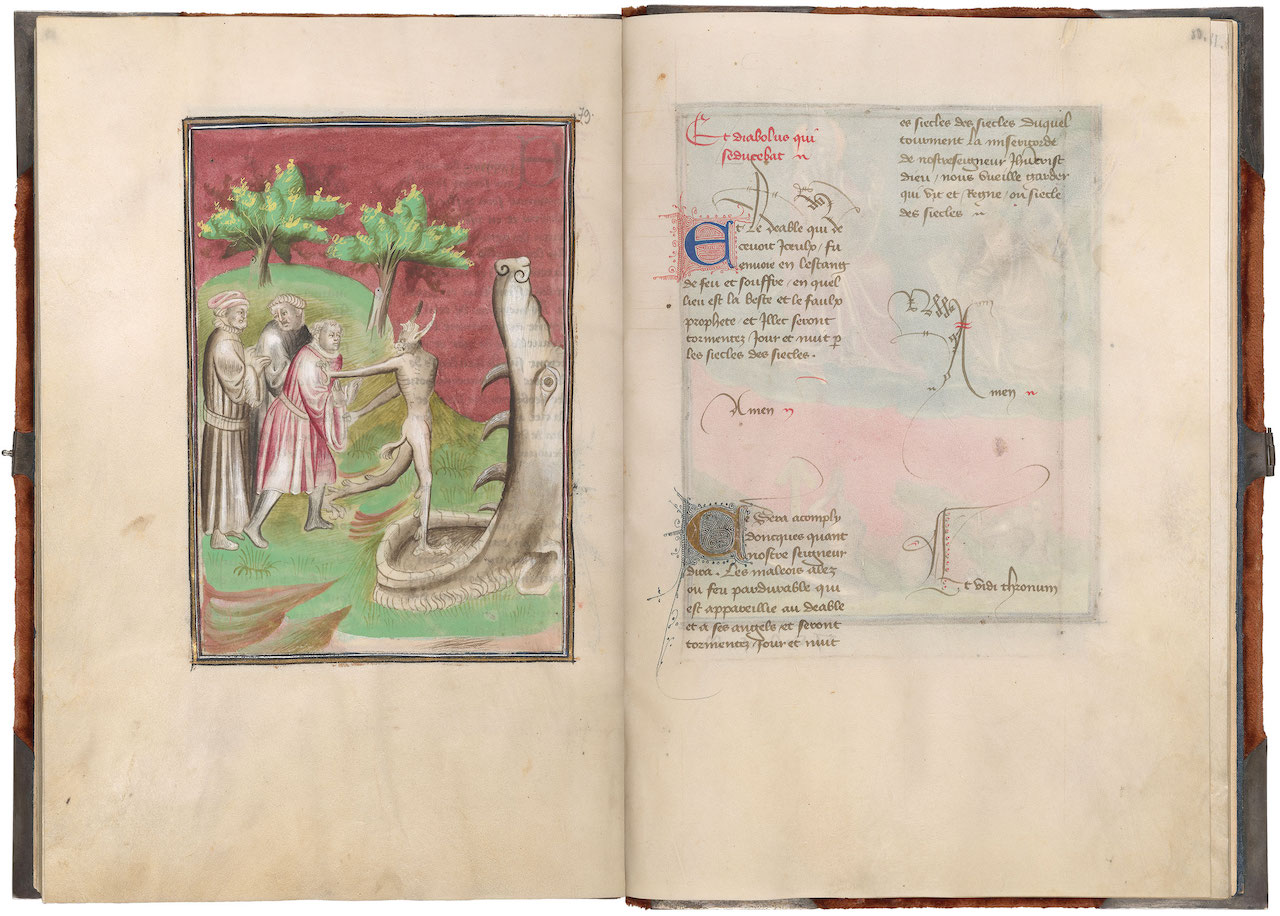 79.
Et diabolus qui
seducebat
Et le deable qui de
cevoit Iceulx / fu
envoie en lestang
de feu et souffre / en quel
lieu est la beste et le faulx
prophete et Illec seront
tormentez Jour et nuit p
les siecles des siecles .
Amen
Ce Sera acomply
doncques quant
nostre seigneur
dira . Les maleois alez
ou feu pardurable qui
est appareillie au deable
et a ses angels / et seront
tormentez / Jour et nuit
es siecles des siecles Duquel
tourment la misericorde
de nostreseigneur Jhucrist
dieu / nous vueille garder
qui vit et Regne / ou siecle
des siecles
Amen
Et vidi thronum